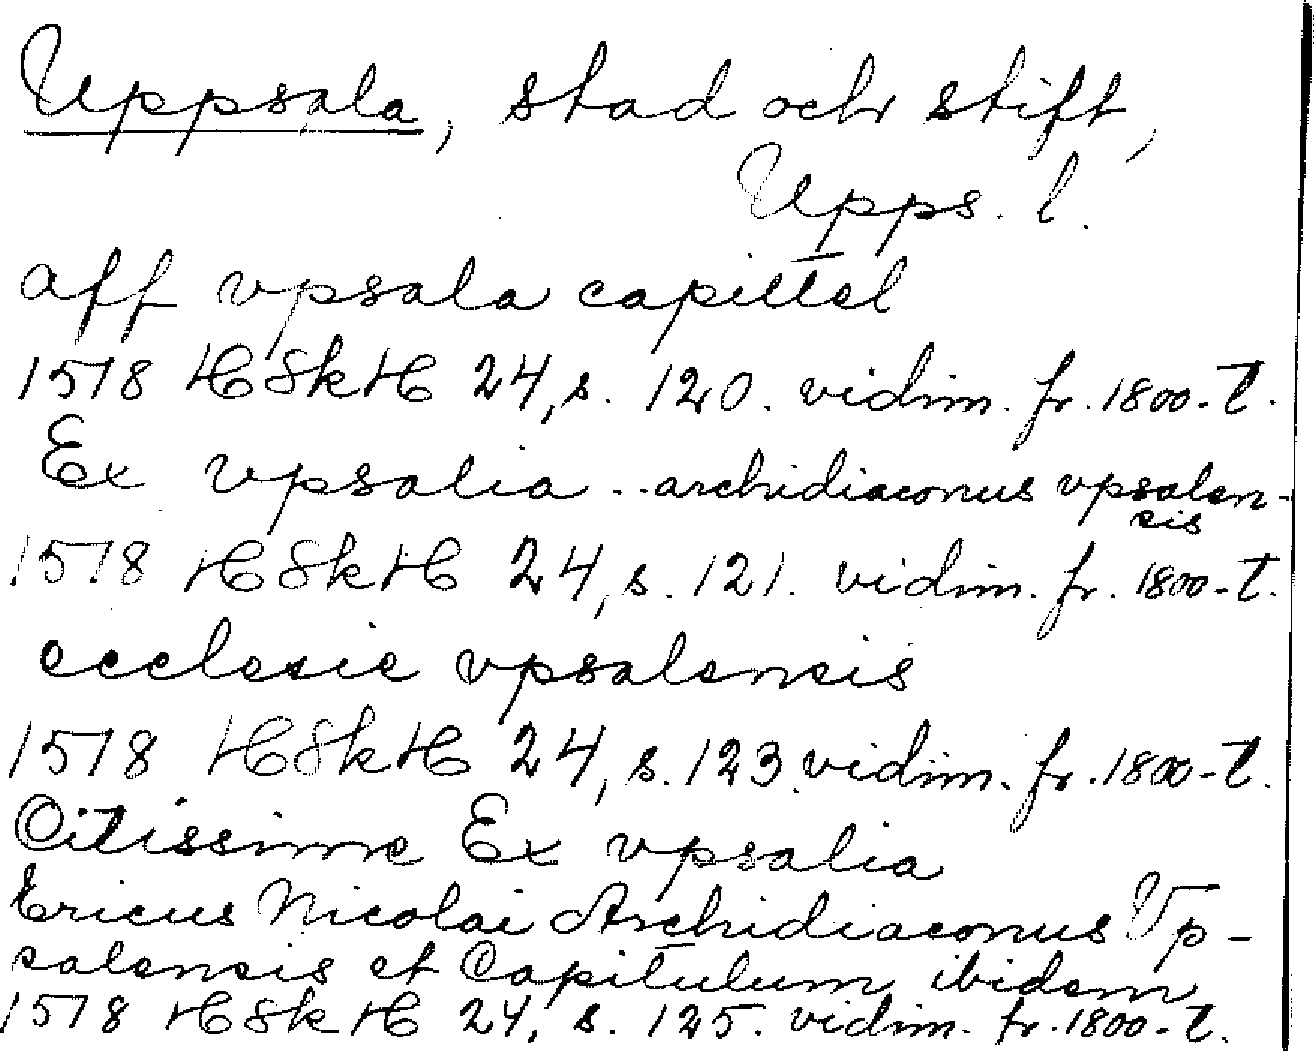 Uppsala, stad och stift,
Upps. l.
aff vpsala capittel
1578 HSkH 24, s. 120. vidim. fr. 1800-t.
Ex vpsalia .. archidiaconus vpsalen-
sis
1578 HSkH 24, s. 121. vidim. fr. 1800-t.
ecclesie vpsalensis
1578 HSkH 24, s. 123. vidim. fr. 1800-t.
Citissime Ex vpsalia
Ericus Nicolai Archidiaconus Vp-
salensis et Capitulum ibidem
1578 HSkH 24, s. 125. vidim. fr. 1800-t.